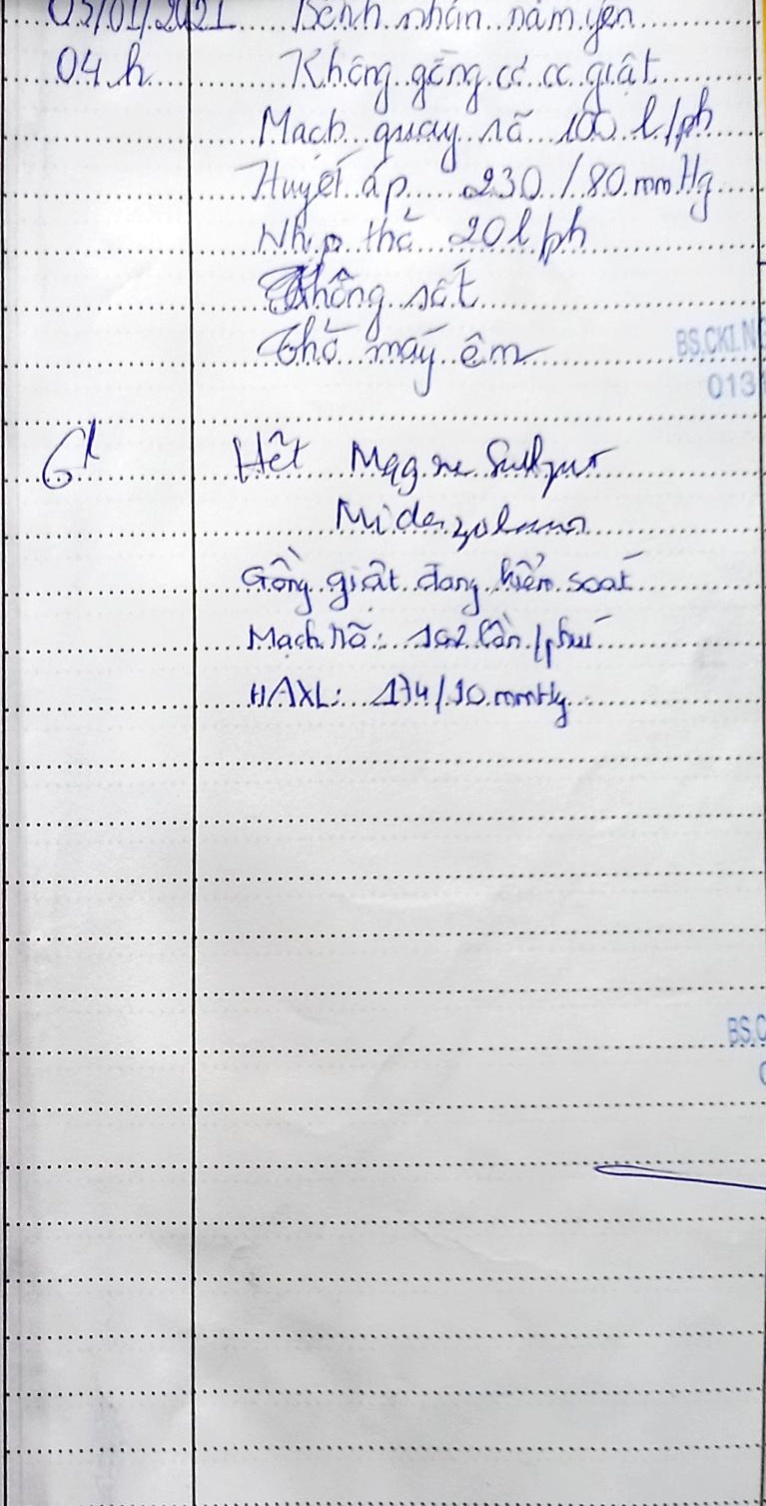 05/01/2021 Bệnh nhân nằm yên
04h Không gồng cơ co giật
Mạch quay rõ 100 l/ph
Huyết áp 230/80 mmHg
Nhịp thở 20 l/ph
Không sốt
Thở máy êm
BS.CKI.N
013
6h Hết Magne Sulfat
Midazolam
Gồng giật đang kiểm soát
Mạch rõ: 102 lần/phút
HAXL: 174/90 mmHg
BS.C